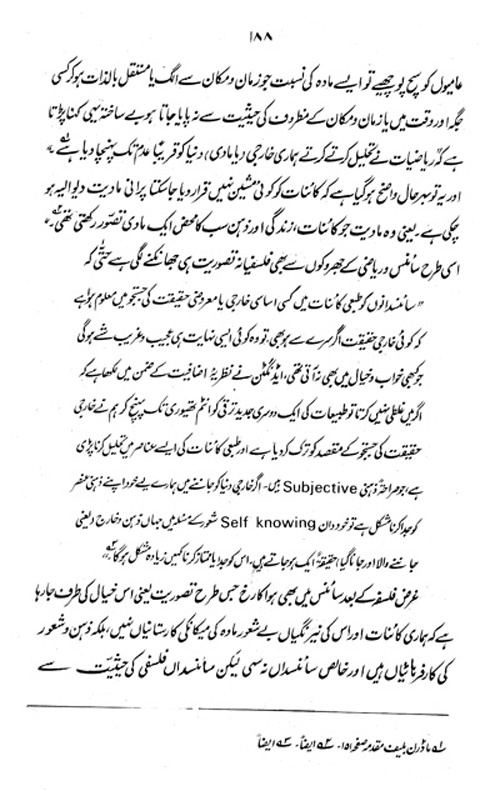 ۱۸۸
عامیوں کو سچ پوچھیے تو ایسے مادہ کی نسبت جو زمان و مکان سے الگ یا مستقل بالذات ہو کر کسی
جگہ اور وقت میں یا زمان و مکان کے مظروف کی حیثیت سے نہ پایا جاتا ہو بے ساختہ یہی کہنا پڑتا
ہے کہ "ریاضیات نے تحلیل کرتے کرتے ہماری خارجی (یا مادی) دنیا کو قریباً عدم تک پہنچا دیا ہے" لہ
اور یہ تو بہرحال واضح ہو گیا ہے کہ کائنات کو کوئی مشین نہیں قرار دیا جا سکتا پرانی مادیت دیوالیہ ہو
چکی ہے۔ یعنی وہ مادیت جو کائنات، زندگی اور ذہن سب کا محض ایک مادی تصور رکھتی تھی۔ ۲ہ
اسی طرح سائنس و ریاضی کے جھروکوں سے بھی فلسفیانہ تصوریت ہی جھانکنے لگی ہے حتیٰ کہ
"سائنسدانوں کو طبعی کائنات میں کسی اساسی خارجی یا معروضی حقیقت کی جستجو میں معلوم ہوا ہے
کہ کوئی خارجی حقیقت اگر سرے سے ہو بھی، تو وہ کوئی ایسی نہایت ہی عجیب و غریب شے ہو گی
جو کبھی خواب و خیال میں بھی نہ آئی تھی، ایڈنگٹن نے نظریۂ اضافیت کے ضمن میں لکھا ہے کہ
اگر میں غلطی نہیں کرتا تو طبیعات کی ایک دوسری جدید ترقی کوانٹم تھیوری تک پہنچ کر ہم نے خارجی
حقیقت کی جستجو کے مقصد کو ترک کر دیا ہے اور طبعی کائنات کی ایسے عناصر میں تحلیل کرنا پڑی
ہے، جو صراحۃً ذہنی Subjective ہیں۔ اگر خارجی دنیا کو جاننے میں ہمارے لیے خود اپنے ذہنی عنصر
کو جدا کرنا مشکل ہے تو خود دان Self knowing شعور کے مسئلہ میں جہاں ذہن و خارج (یعنی
جاننے والا اور جانا گیا) حقیقتہً ایک ہو جاتے ہیں، اس کو جدا یا ممتاز کرنا کہیں زیادہ مشکل ہو گا" ۳ہ
غرض فلسفہ کے بعد سائنس میں بھی ہوا کا رخ جس طرح تصوریت یعنی اس خیال کی طرف جا رہا
ہے کہ ہماری کائنات اور اس کی نیرنگیاں بے شعور مادہ کی میکانکی کارستانیاں نہیں، بلکہ ذہن و شعور
کی کارفرمائیاں ہیں اور خالص سائنسداں نہ سہی لیکن سائنسداں فلسفی کی حیثیت سے
۱ہ ماڈرن بلیف مقدمہ صفحہ ۱۵۔ ۲ہ ایضاً۔ ۳ہ ایضاً